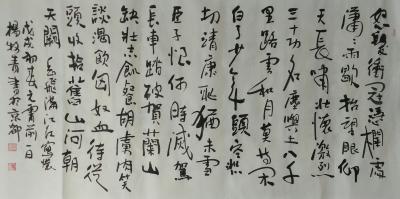 怒髮衝冠憑欄處
瀟瀟雨歇抬望眼仰
天長嘯壯懷激烈
三十功名塵與土八千
里路雲和月莫等閑
白了少年頭空悲
切靖康恥猶未雪
臣子恨何時滅駕
長車踏破賀蘭山
缺壯志飢餐胡虜肉笑
談渴飲匈奴血待從
頭收拾舊山河朝
天闕 岳飛滿江紅寫懷
戊戌初春元宵前一日
楊牧青書於京都